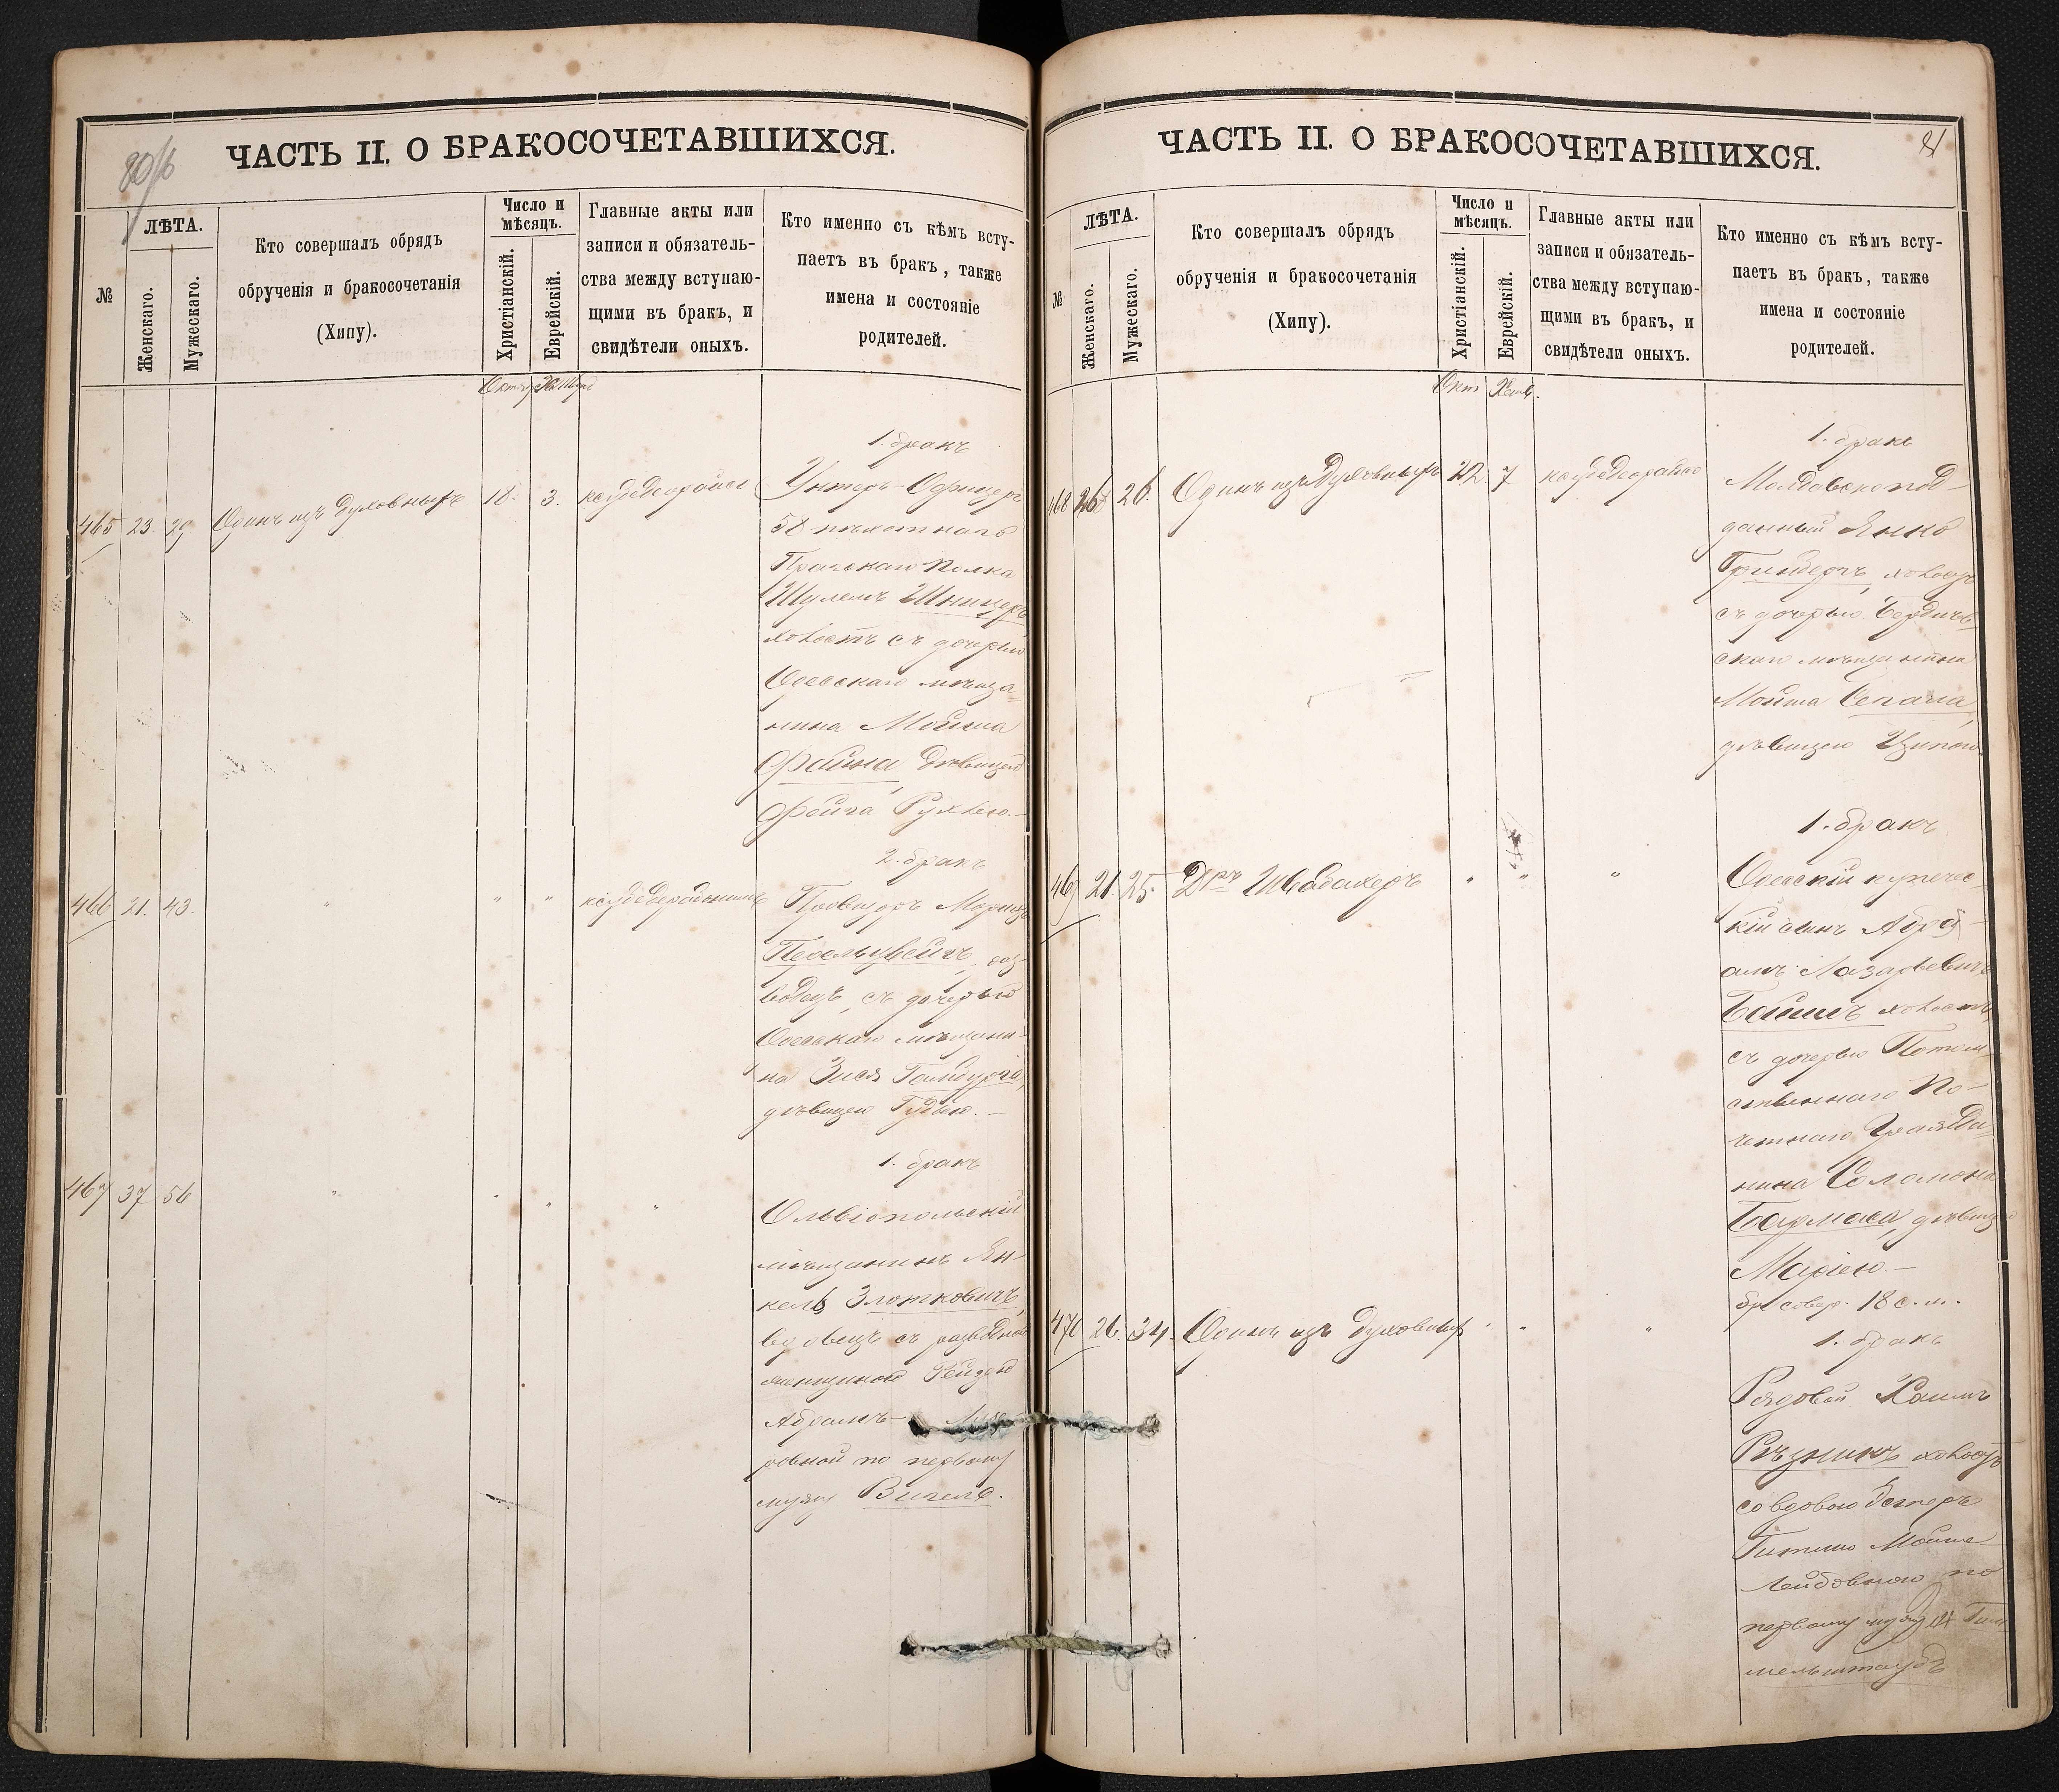 80/б
ЧАСТЬ II. О БРАКОСОЧЕТАВШИХСЯ.
№
ЛѢТА.
Женскаго.
Мужескаго.
Кто совершалъ обрядъ
обрученія и бракосочетанія
(Хипу).
Число и
мѣсяцъ.
Христіанскій.
Еврейскій.
Главные акты или
записи и обязатель-
ства между вступаю-
щими въ бракъ, и
свидѣтели оныхъ.
Кто именно съ кѣмъ всту-
паетъ въ бракъ, также
имена и состояніе
родителей.
465 23. 29. Одинъ изъ духовныхъ 18. 3.
1. бракъ
Унтеръ-Офицеръ
58 пѣхотнаго
Прагскаго Полка
Шулемъ Шницеръ
холостъ съ дочерью
Одесскаго мѣща-
нина Мойша
Файна, дѣвицею
Фейга Рухлею.-
466 21. 43. " " "
2. бракъ
Провизоръ
Перельцвейгъ, раз-
водецъ, съ дочерью
Одесскаго мѣщани-
на Зися Гамбурга,
дѣвицею
467 37 56 " " " "
1. бракъ
Ольвіопольскій
мѣщанинъ Ян-
кель Златковичъ,
вдовецъ съ разведеной
женщиною Рейзею
Абрамъ-
ровной по первому
мужу Вигелъ.
ЧАСТЬ II. О БРАКОСОЧЕТАВШИХСЯ.
81
№
ЛѢТА.
Женскаго.
Мужескаго.
Кто совершалъ обрядъ
обрученія и бракосочетанія
(Хипу).
Число и
мѣсяцъ.
Христіанскій.
Еврейскій.
Главные акты или
записи и обязатель-
ства между вступаю-
щими въ бракъ, и
свидѣтели оныхъ.
Кто именно съ кѣмъ всту-
паетъ въ бракъ, также
имена и состояніе
родителей.
Окт
468 26 26. Одинъ изъ духовныхъ 22. 7
1. бракъ
Молдавскопод-
данный Янко
Гринбергъ, холостъ
съ дочерью Бердичев-
скаго мѣщанина
Мойша
дѣвицею Ципою
469 21. 25. Дръ Швабахеръ " " "
1. бракъ
Одесскій купечес-
кій сынъ Абра-
амъ Лазаревичъ
холостъ,
съ дочерью Потом-
ственнаго По-
четнаго Гражда-
нина Соломона
Бармаса, дѣвицею
Маріею.-
бр. совер. 18 с. м.
470 26. 34. Одинъ изъ духовныхъ " " "
1. бракъ
Рядовой Хаимъ
Рѣзникъ холостъ
со вдовою Эстеръ
Гитлею Мойше
Лейбовною по
первому мужу